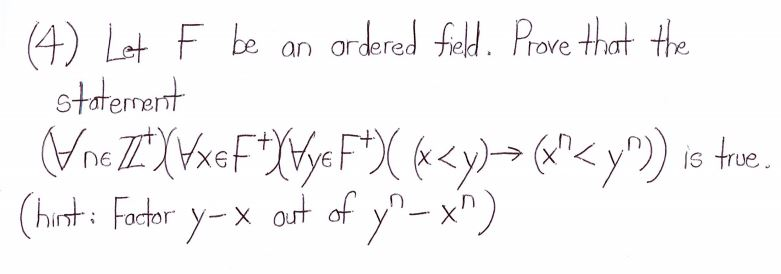 (4) Let F be an ordered field. Prove that the
statement
(∀n∈ℤ⁺)(∀x∈F⁺)(∀y∈F⁺)( (x<y)→(xⁿ<yⁿ)) is true.
(hint: Factor y-x out of yⁿ-xⁿ)